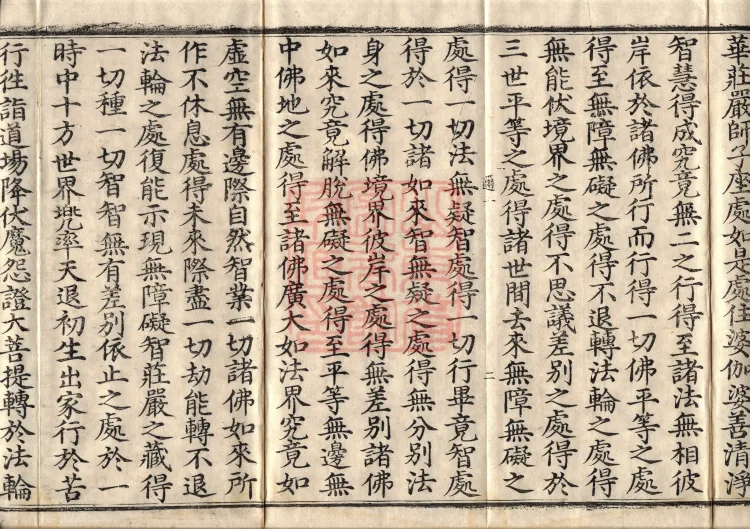 華莊嚴師子座處如是處住婆伽婆善清淨
智慧得成究竟無二之行得至諸法無相彼
岸依於諸佛所行而行得一切佛平等之處
得至無障無礙之處得不退轉法輪之處得
無能伏境界之處得不思議差別之處得於
三世平等之處得諸世間去來無障無礙之
處得一切法無疑智處得一切行畢竟智處
得於一切諸如來智無疑之處得無分別法
身之處得佛境界彼岸之處得無差別諸佛
如來究竟解脫無礙之處得至平等無邊無
中佛地之處得至諸佛廣大如法界究竟如
虛空無有邊際自然智業一切諸佛如來所
作不休息處得未來際盡一切劫能轉不退
法輪之處復能示現無障礙智莊嚴之藏得
一切種一切智智無有差別依止之處於一
時中十方世界兜率天退初生出家行於苦
行往詣道場降伏魔怨證大菩提轉於法輪
二